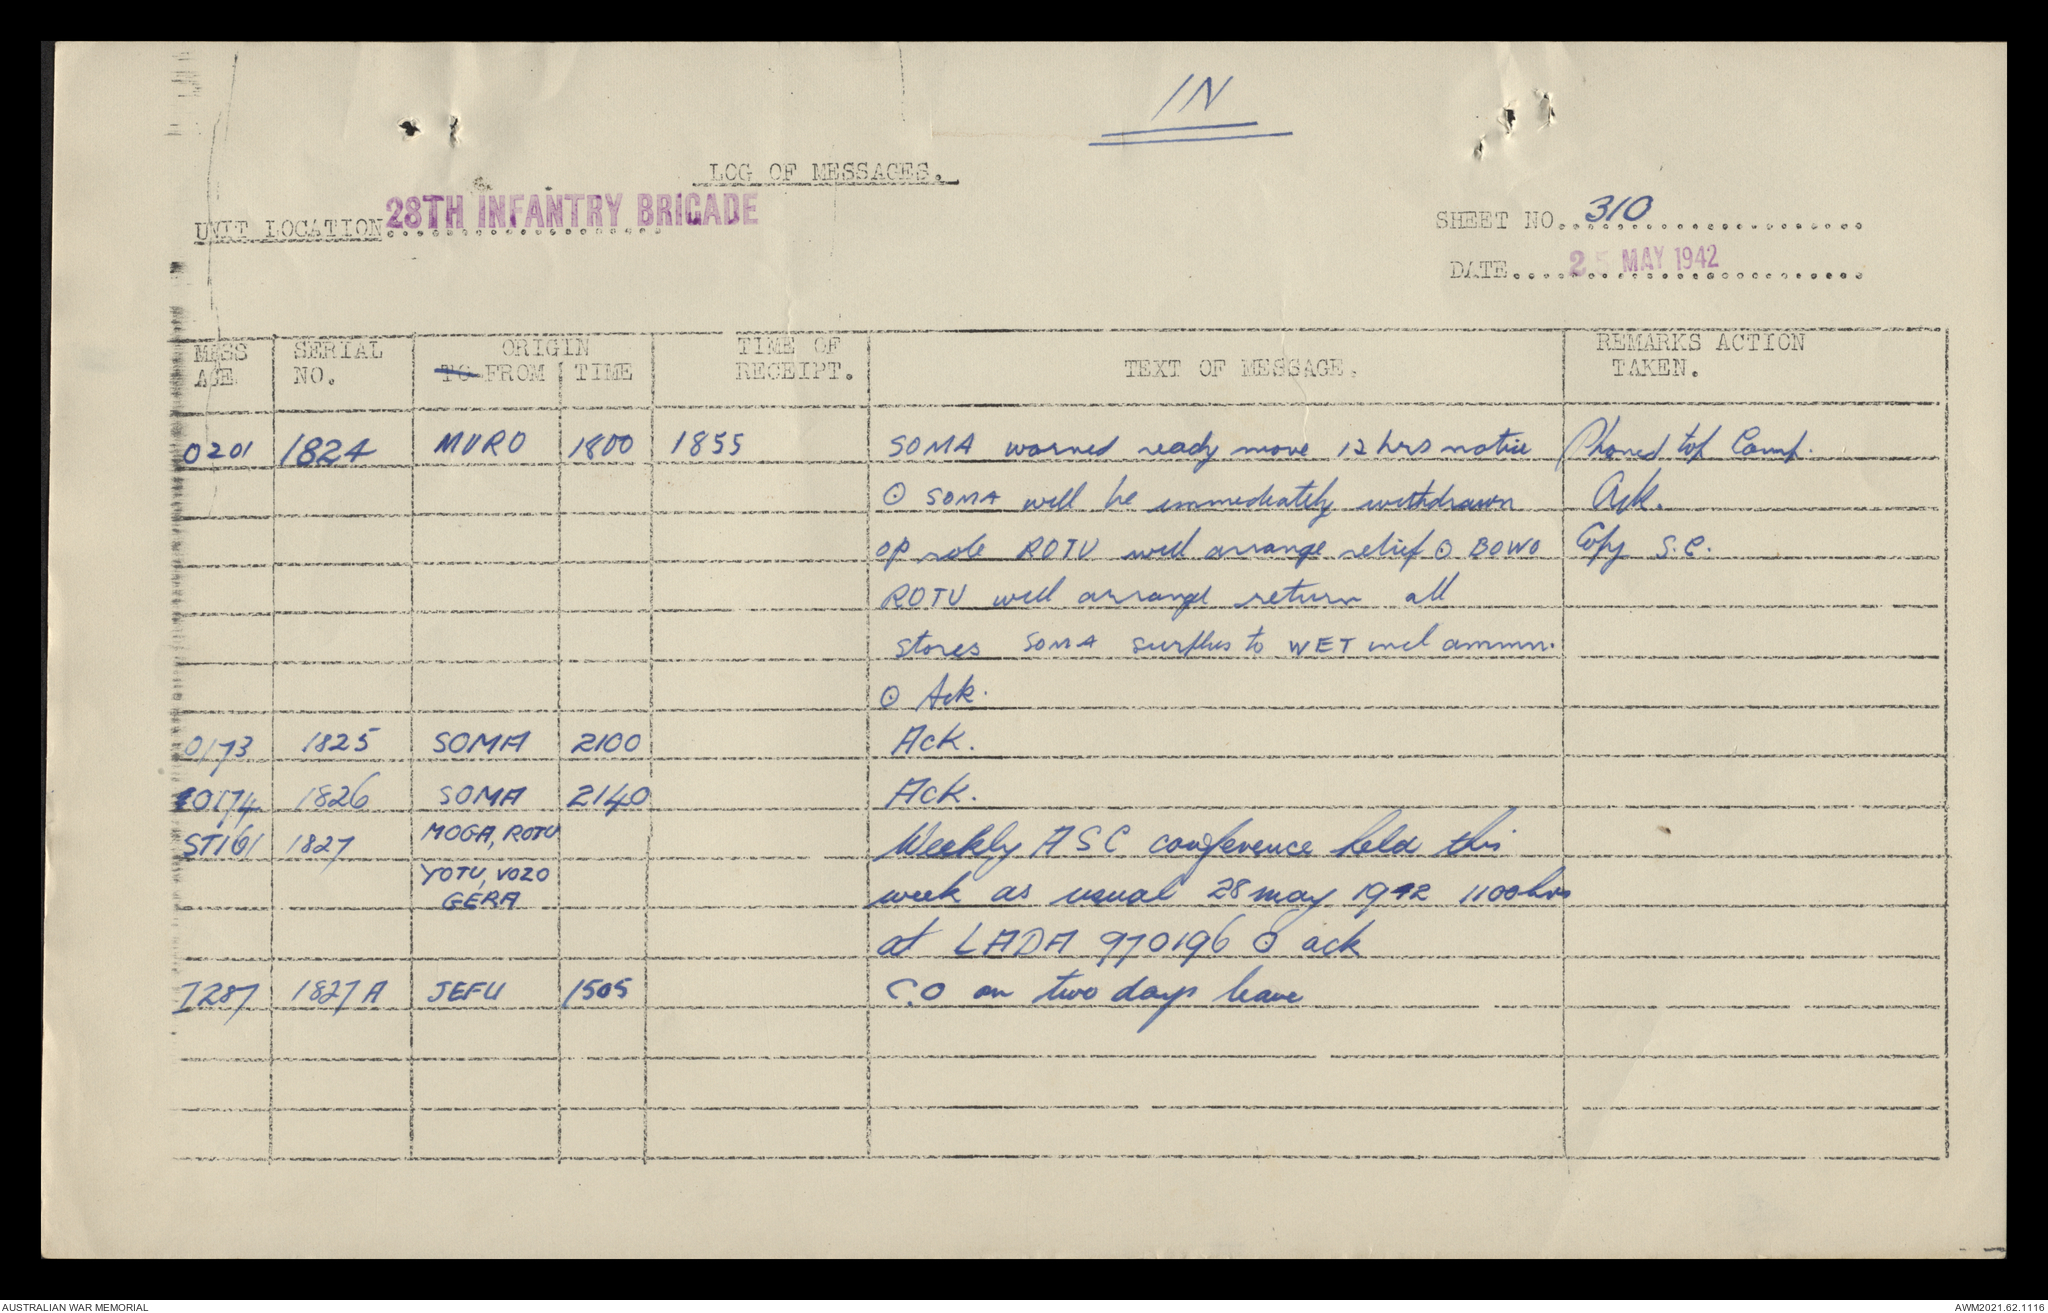 IN
LOG OF MESSAGES.
UNIT LOCATION 28TH INFANTRY BRIGADE
SHEET NO. 310
DATE 25 MAY 1942
MESS AGE. SERIAL NO. ORIGIN TO FROM TIME TIME OF RECEIPT. TEXT OF MESSAGE. REMARKS ACTION TAKEN.
0201 1824 MURO 1800 1855 SOMA warned ready move 12 hrs notice Phoned
⊙ SOMA will be immediately withdrawn Ack.
op role ROTU will arrange relief ⊙ BOWO Copy S.C.
ROTU will arrange return all
stores SOMA surplus to WET incl ammn.
⊙ Ack.
0173 1825 SOMA 2100 Ack.
0174 1826 SOMA 2140 Ack.
ST161 1827 MOGA, ROTU Weekly ASC conference held this
YOTU, VOZO
GERA week as usual 28 may 1942 1100 hrs
at LADA 970196 ⊙ ack
I287 1827A JEFU 1505 C.O on two days leave
AUSTRALIAN WAR MEMORIAL
AWM2021.62.1116